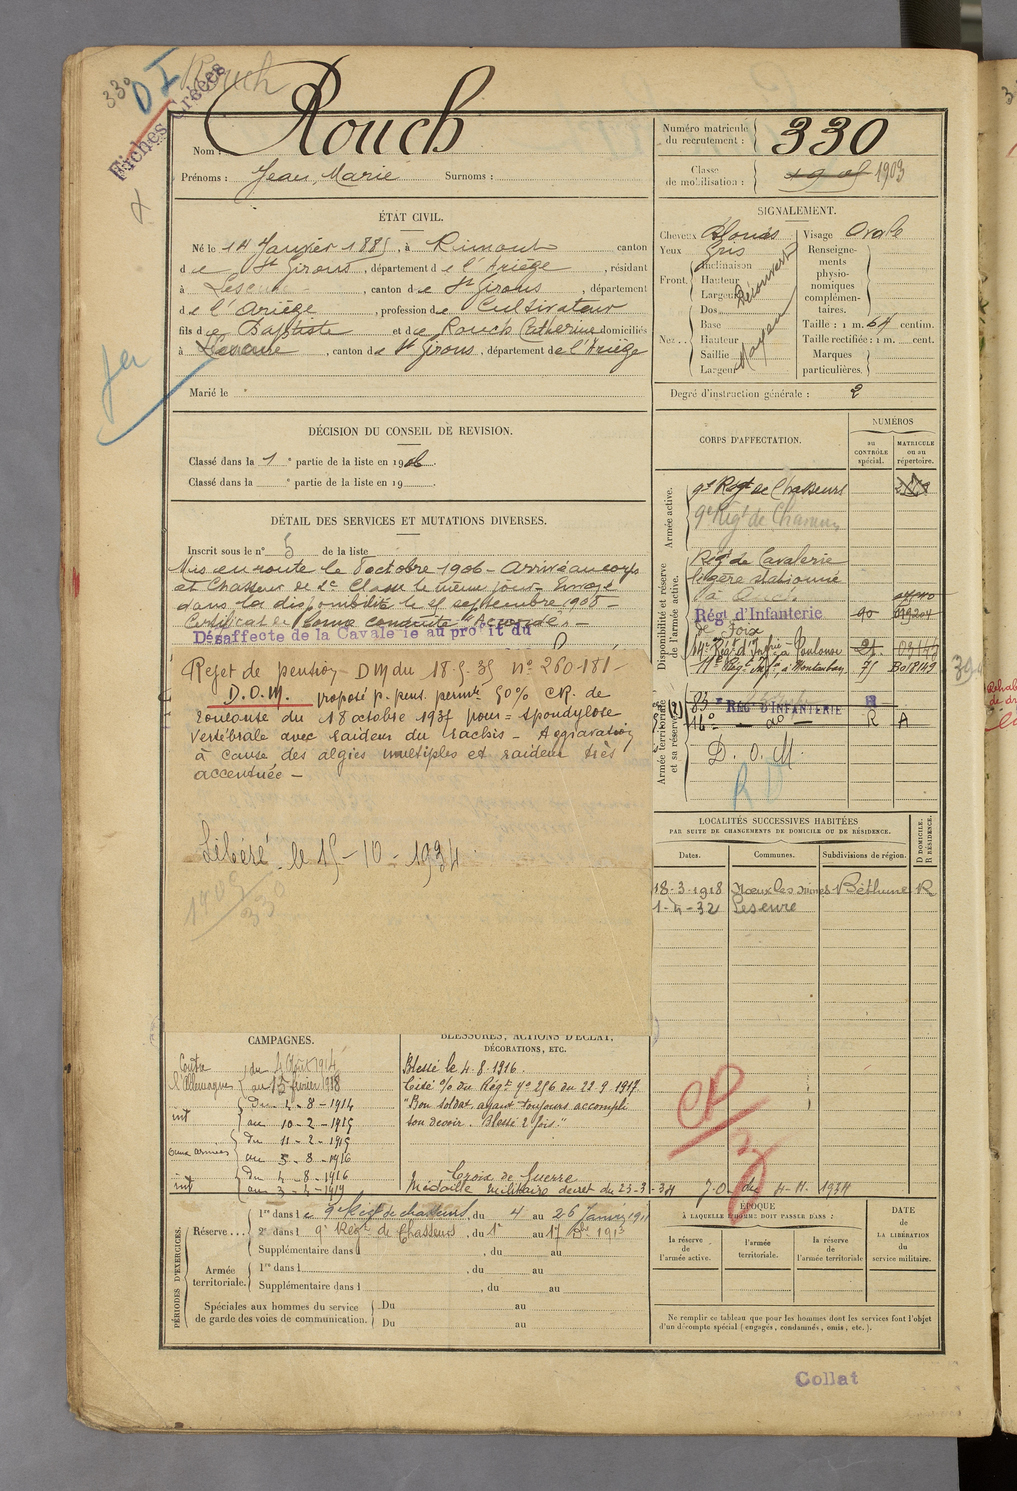 330 D I Rouch
Fiches Créées
Nom : Rouch
Prénoms : Jean, Marie Surnoms :
Numéro matricule du recrutement : 330
Classe de mobilisation : 1905 1903
ÉTAT CIVIL.
Né le 14 Janvier 1885, à Rimont canton
de St Girons, département de l'Ariège, résidant
à Lescure, canton de St Girons, département
de l'Ariège, profession de Cultivateur
fils de Baptiste et de Rouch Catherine domiciliés
à Lescure, canton de St Girons, département de l'Ariège
Marié le
SIGNALEMENT.
Cheveux Blonds
Yeux Gris
Front
Inclinaison
Hauteur
Largeur
Découvert
Nez
Dos
Base
Hauteur
Saillie
Largeur
Moyen
Visage Ovale
Renseignements physionomiques complémentaires.
Taille : 1 m. 64 centim.
Taille rectifiée : 1 m. cent.
Marques particulières.
Degré d'instruction générale : 2
DÉCISION DU CONSEIL DE REVISION.
Classé dans la 1e partie de la liste en 1906.
Classé dans la e partie de la liste en 19
DÉTAIL DES SERVICES ET MUTATIONS DIVERSES.
Inscrit sous le n° 5 de la liste
Mis en route le 8 octobre 1906 - Arrivé au corps
et Chasseur de 2e Classe le même jour - Envoyé
dans la disponibilité le 25 septembre 1908 -
Certificat de bonne conduite "Accordé" -
Désaffecté de la Cavalerie au profit du
Rejet de pension DM du 18-5-35 N° 260-181 -
D.O.M. proposé p. pens. permte 50% CR. de
Toulouse du 18 octobre 1937 pour = spondylose
vertébrale avec raideur du rachis - Aggravation
à cause des algies multiples et raideur très
accentuée -
Libéré le 15-10-1934
1905
330
CORPS D'AFFECTATION.
NUMÉROS
au CONTRÔLE spécial.
MATRICULE ou au répertoire.
Armée active.
9e Régt de Chasseurs
9e Régt de Chasseurs
Disponibilité et réserve de l'armée active.
Régt de Cavalerie
légère stationné
à Auch
Régt d'Infanterie 90
de Foix
14e Régt d'Infrie à Toulouse 21
11e Régt Infie à Montauban 75 Bo18149
Armée territoriale et sa réserve
83e RÉGt D'INFANTERIE
14e - do - R A
D. O. M.
R D
LOCALITÉS SUCCESSIVES HABITÉES
PAR SUITE DE CHANGEMENTS DE DOMICILE OU DE RÉSIDENCE.
D DOMICILE. R RÉSIDENCE.
Dates. Communes. Subdivisions de région.
18-3-1918 Nœux les mines Béthune R
1-4-32 Lescure
CAMPAGNES.
Contre l'Allemagne du 4 Août 1914
au 12 février 1918
int Du 4-8-1914
au 10-2-1915
aux armées du 11-2-1915
au 3-8-1916
int du 4-8-1916
au 3-4-1919
BLESSURES, ACTIONS D'ÉCLAT,
DÉCORATIONS, ETC.
Blessé le 4.8.1916.
Cité % du Régt n° 256 du 22.9.1917.
"Bon soldat, ayant toujours accompli
son devoir. Blessé 2 fois."
Croix de Guerre
Médaille Militaire décret du 23-3-34 J.O. du 4-11-1934
CP
PÉRIODES D'EXERCICES.
Réserve...
1re dans le 9e Régt de chasseurs, du 4 au 26 Janvier 1911
2e dans l 9e Régt de Chasseurs, du 1er au 17 Dbre 1913
Supplémentaire dans l , du au
Armée territoriale.
1re dans l , du au
Supplémentaire dans l , du au
Spéciales aux hommes du service de garde des voies de communication.
Du au
Du au
ÉPOQUE
À LAQUELLE L'HOMME DOIT PASSER DANS :
la réserve de l'armée active.
l'armée territoriale.
la réserve de l'armée territoriale
DATE DE LA LIBÉRATION du service militaire.
Ne remplir ce tableau que pour les hommes dont les services font l'objet
d'un décompte spécial (engagés, condamnés, omis, etc.).
Collat